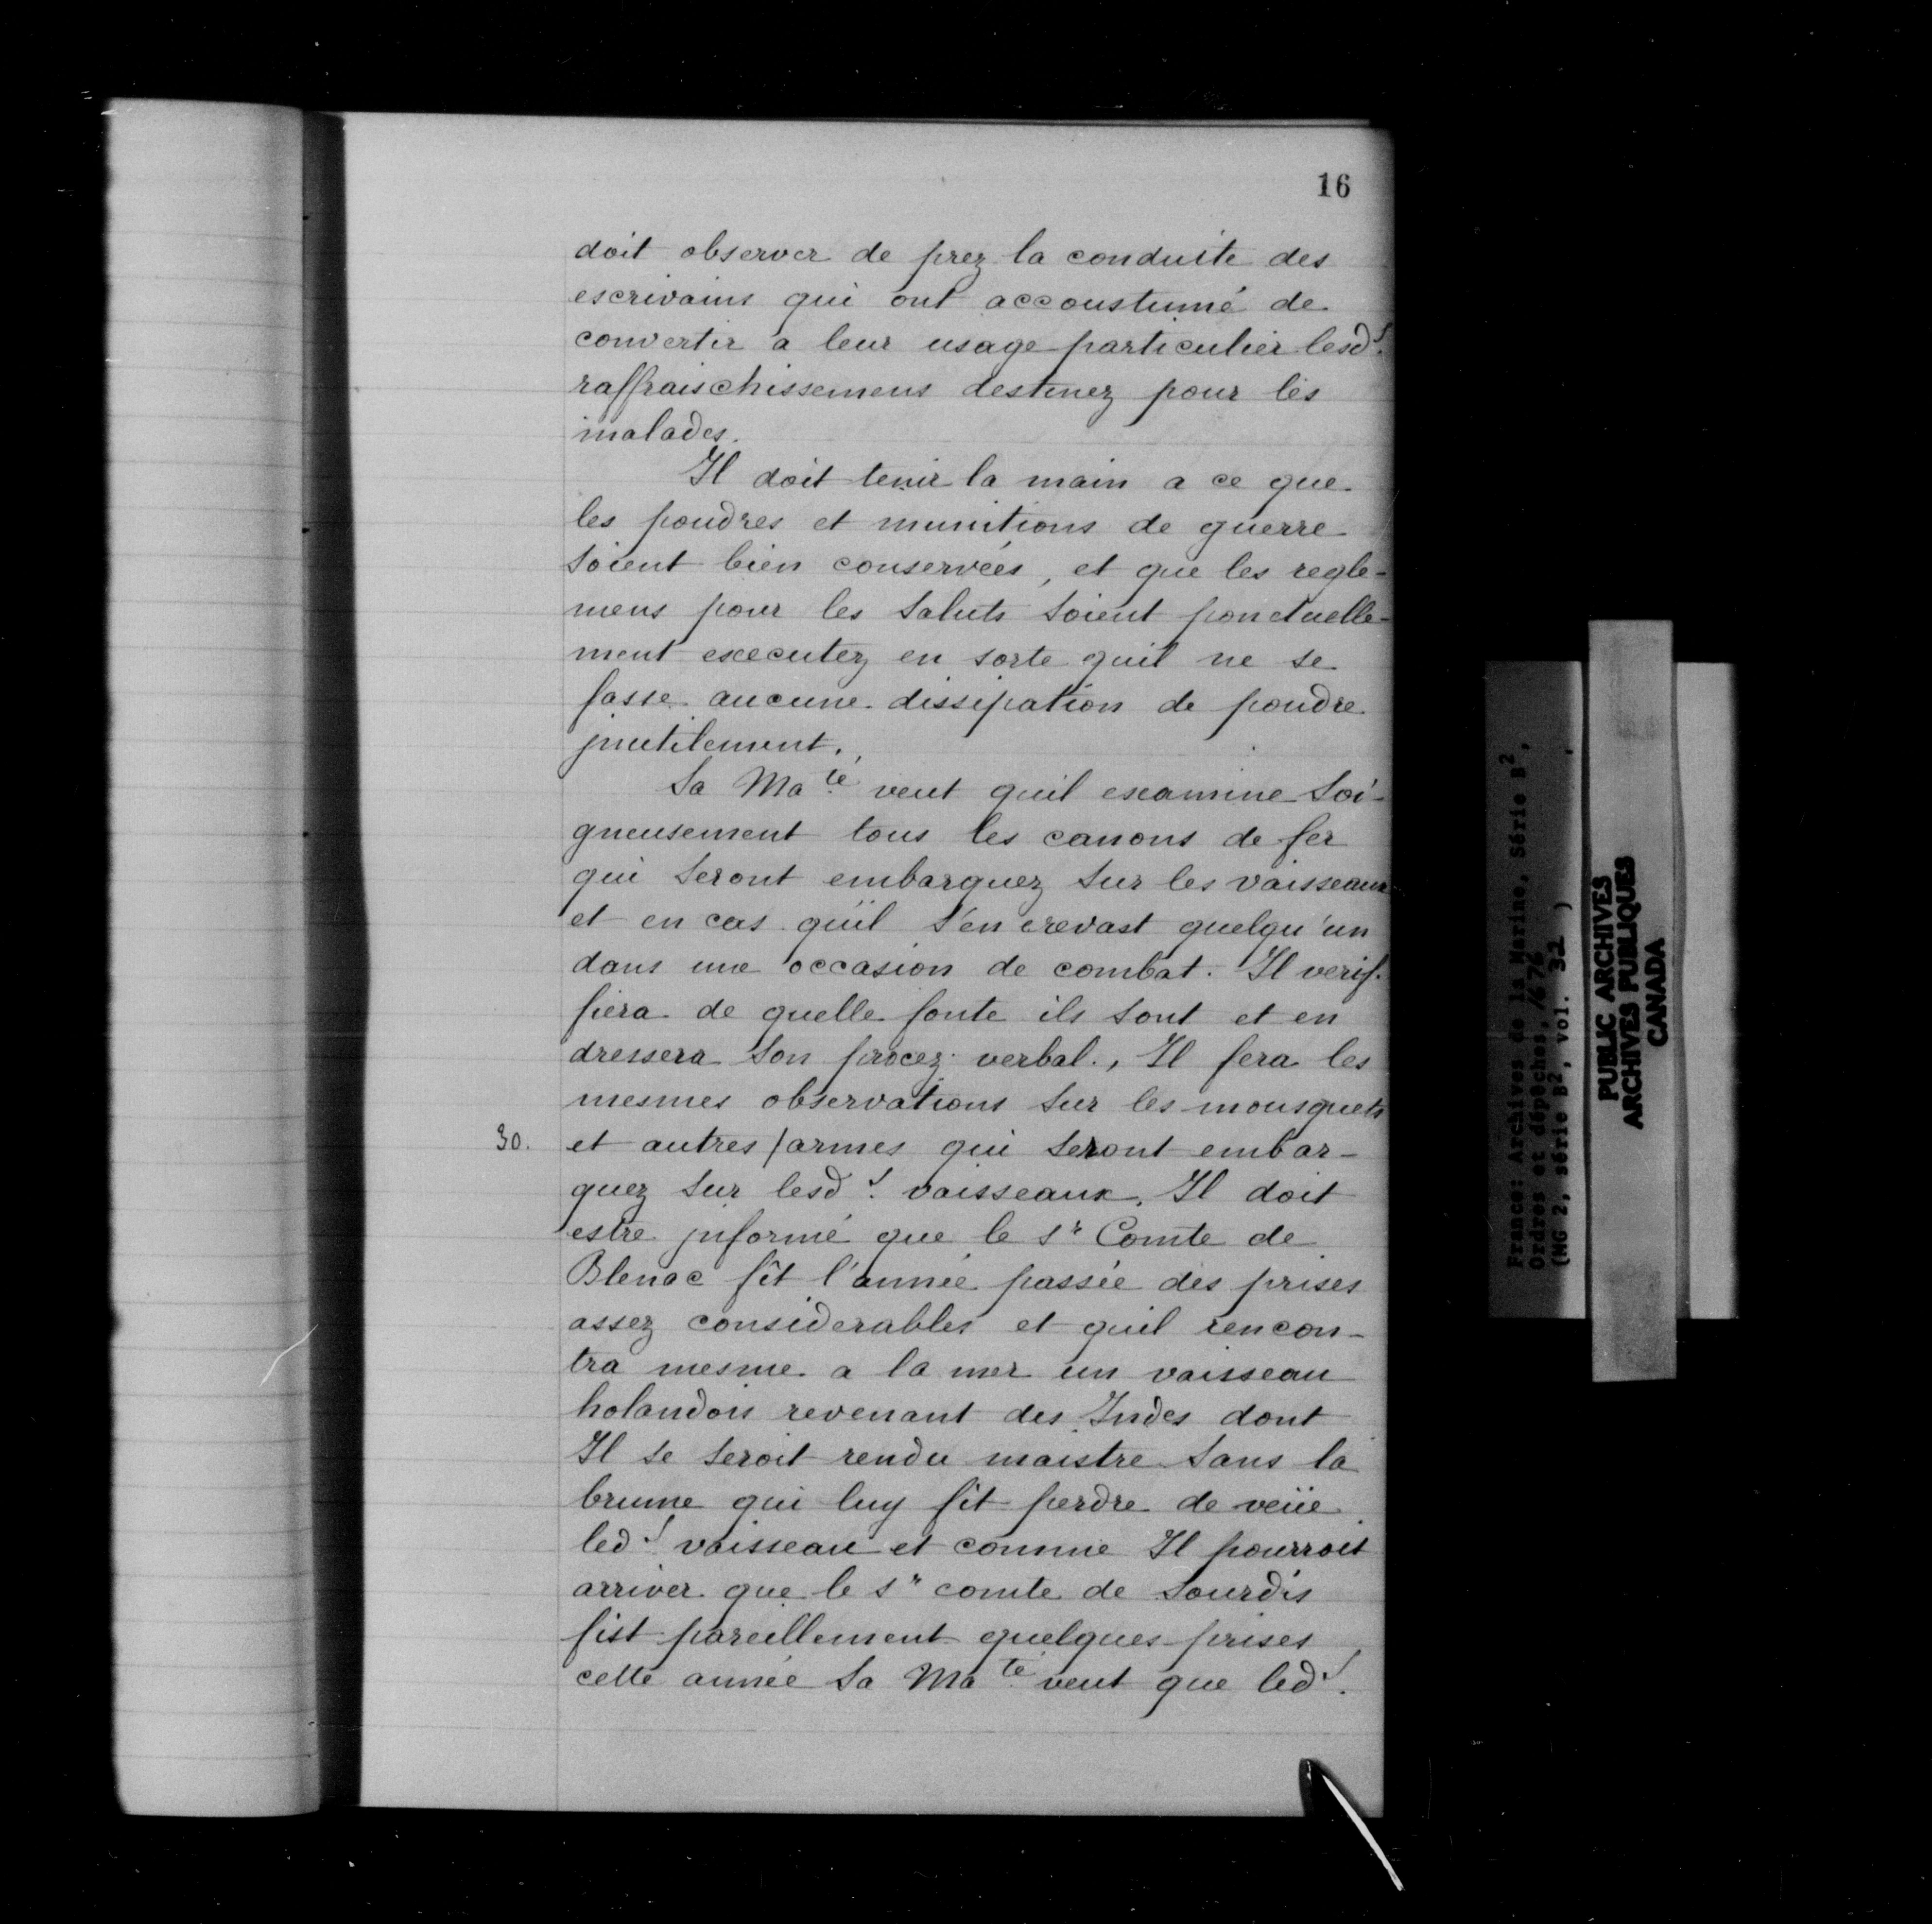 16
doit observer de prez la conduite des
escrivains qui ont accoustumé de
convertir a leur usage particulier lesd.s
raffraischissemens destinez pour les
malades.
Il doit tenir la main a ce que
les poudres et munitions de guerre
soient bien conservées, et que les regle-
mens pour les saluts soient ponctuelle-
ment executez en sorte quil ne se
fasse aucune dissipation de poudre
jnutilement.
Sa Ma.té veut quil examine soi-
gneusement tous les canons de fer
qui seront embarquez sur les vaisseaux
et en cas quil s'en crevast quelqu'un
dans une occasion de combat. Il verif-
fiera de quelle fonte ils sont et en
dressera son procez verbal., Il fera les
mesmes observations sur les mousquets
30. et autres / armes qui seront embar-
quez sur lesd.s vaisseaux. Il doit
estre jnformé que le sr Comte de
Blenac fît l'année passée des prises
assez considerables et quil rencon-
tra mesme a la mer un vaisseau
holandois revenant des Indes dont
Il se seroit rendu maistre sans la
brume qui luy fît perdre de veüe
led.s vaisseau et comme Il pourroit
arriver que le sr comte de Sourdis
fist pareillement quelques prises
cette année Sa Ma.té veut que led.s
France: Archives de la Marine, Série B2,
Ordres et dépêches, 1676
(MG 2, série B2, vol. 32 )
PUBLIC ARCHIVES
ARCHIVES PUBLIQUES
CANADA